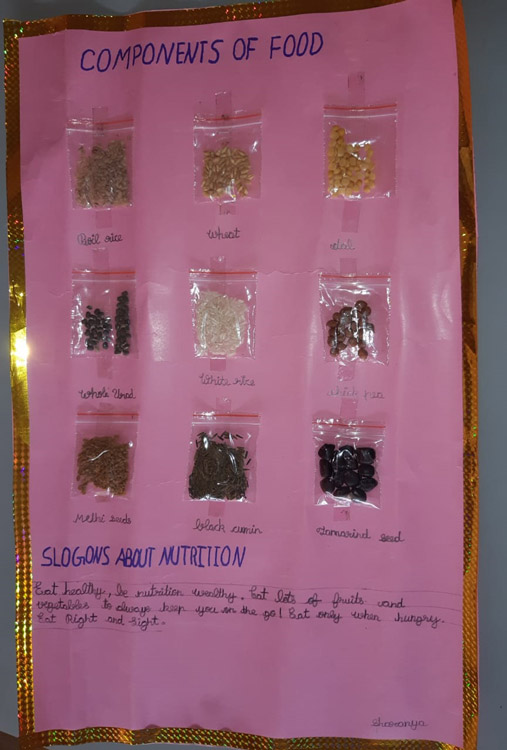 COMPONENTS OF FOOD
Boil rice
wheat
dal
Whole Urad
White rice
chick pea
Methi seeds
black cumin
Tamarind seed
SLOGONS ABOUT NUTRITION
Eat healthy, be nutrition wealthy. Eat lots of fruits and
vegetables to always keep you on the go! Eat only when hungry.
Eat Right and light.
Sharanya